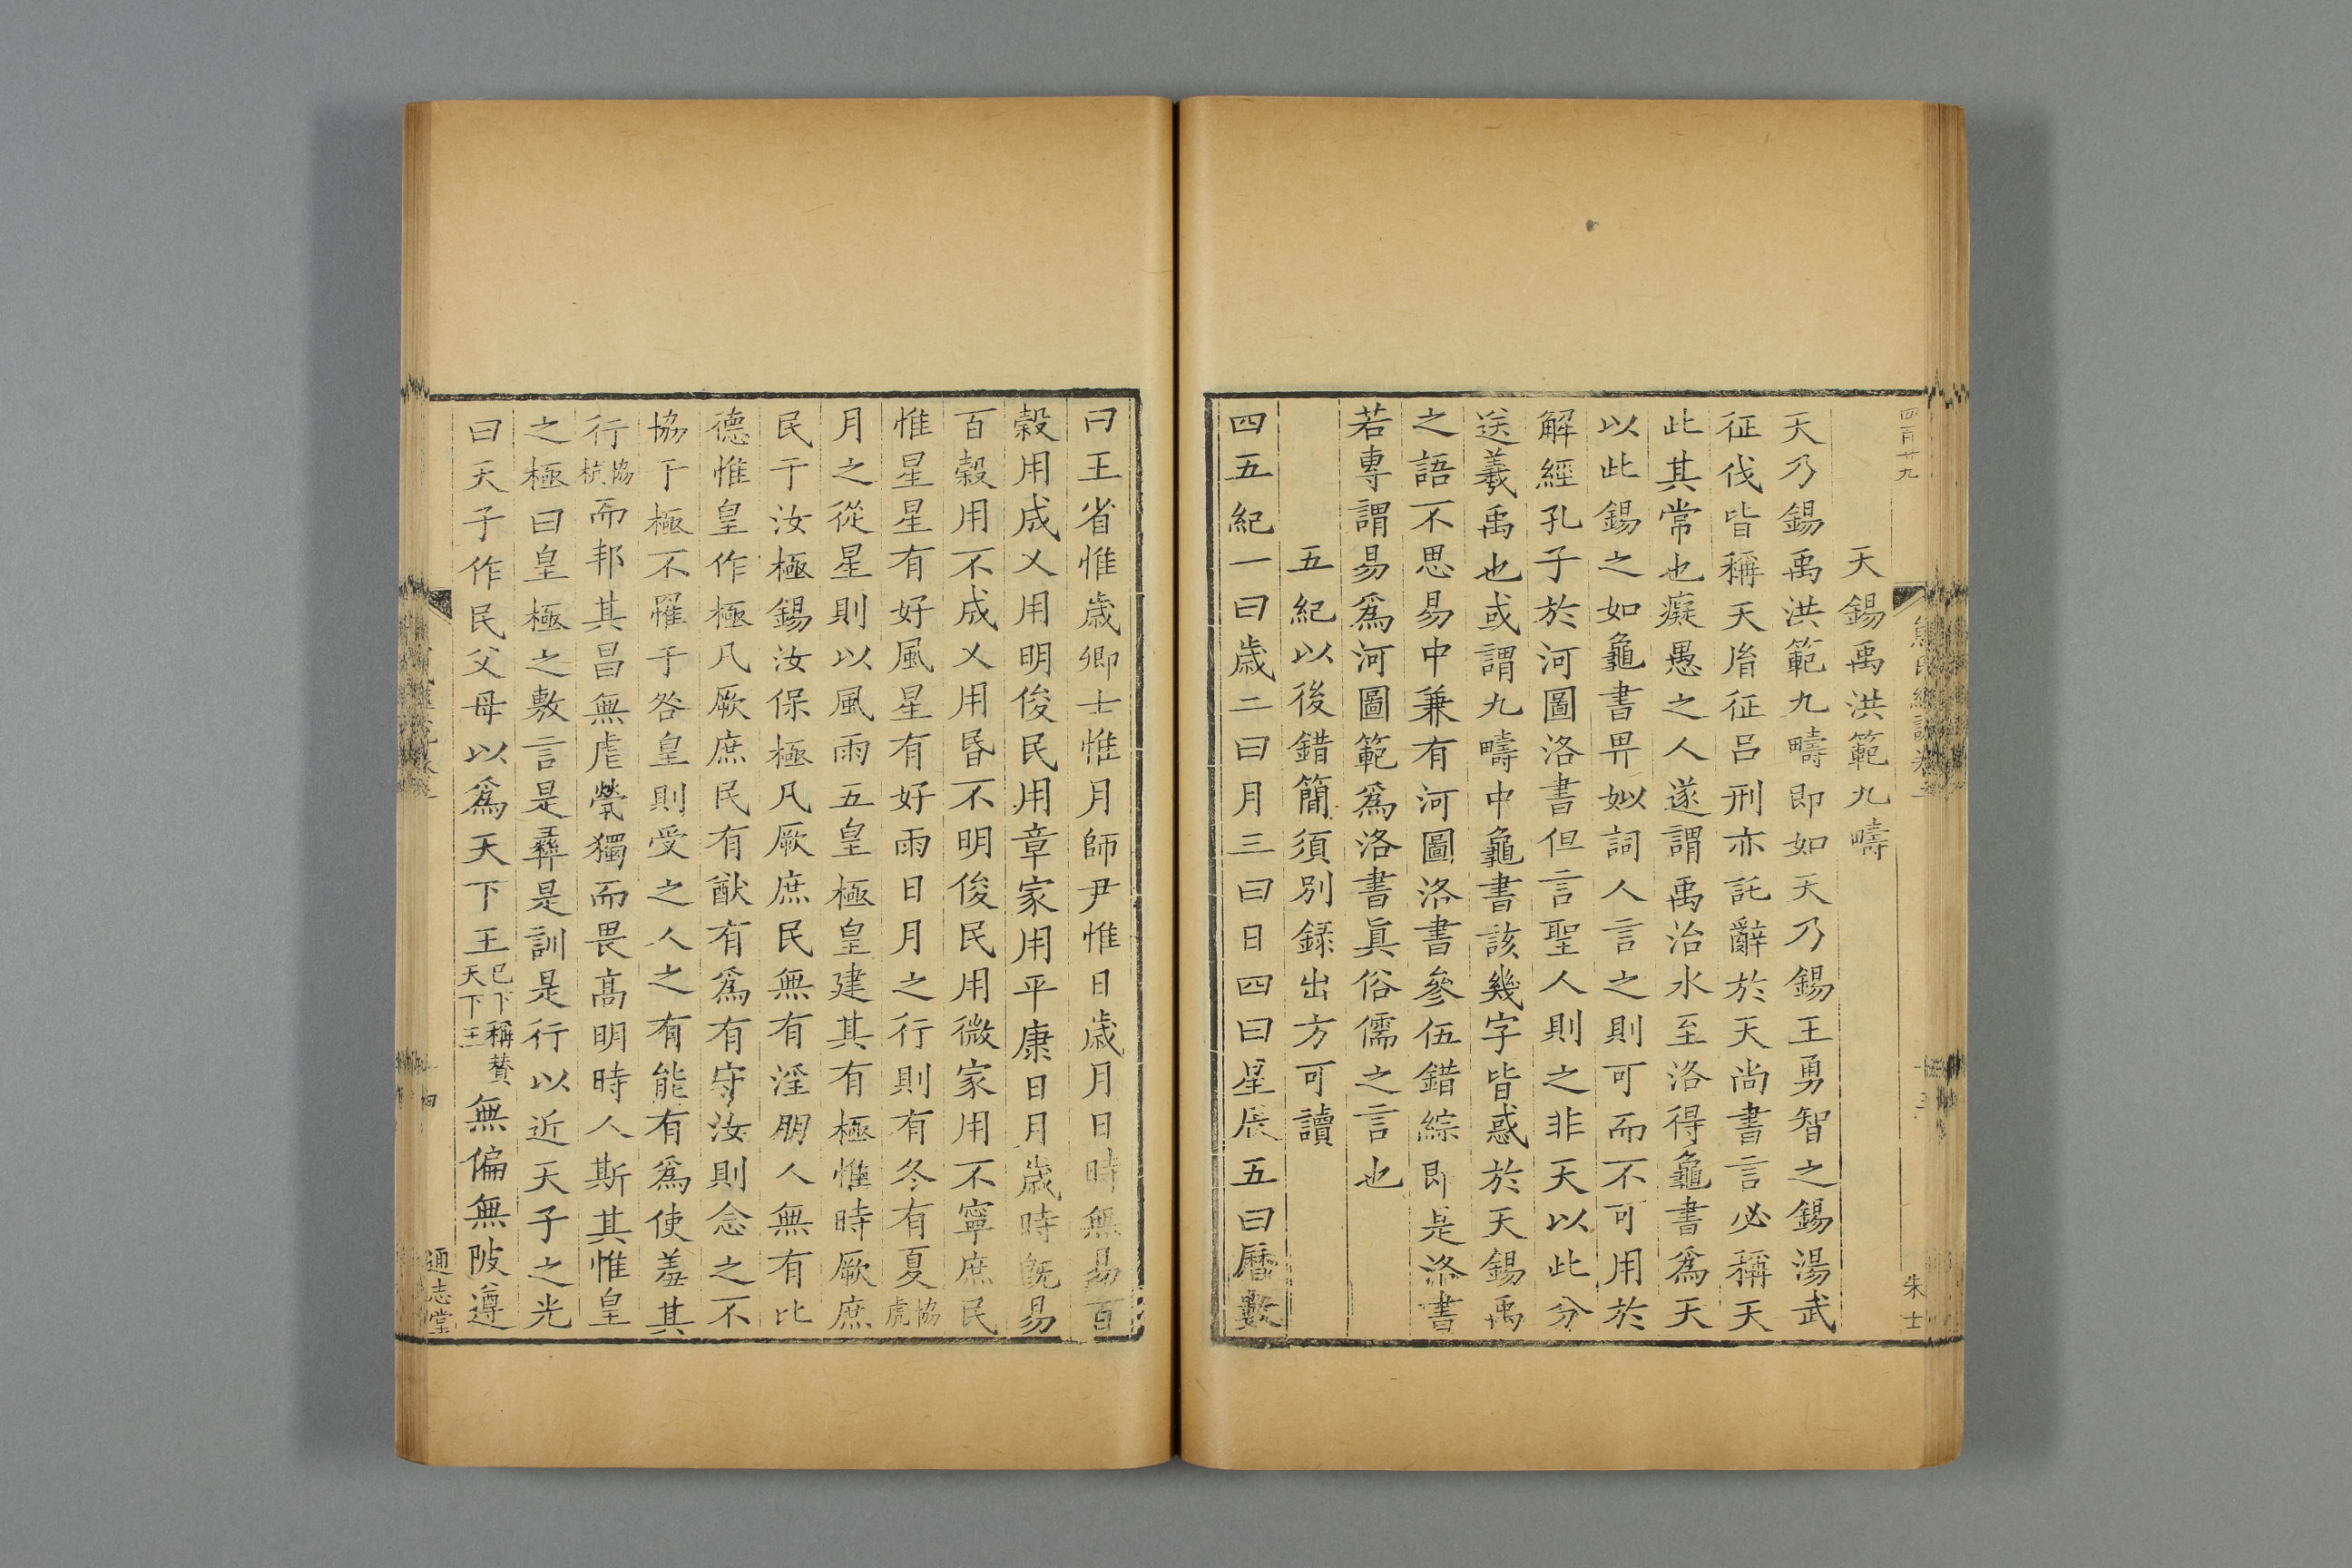 四百廿九
天錫禹洪範九疇
天乃錫禹洪範九疇即如天乃錫王勇智之錫湯武
征伐皆稱天胤征吕刑亦託辭於天尚書言必稱天
此其常也癡愚之人遂謂禹治水至洛得龜書爲天
以此錫之如龜書畀姒詞人言之則可而不可用於
解經孔子於河圖洛書但言聖人則之非天以此分
送羲禹也或謂九疇中龜書該幾字皆惑於天錫禹
之語不思易中兼有河圖洛書參伍錯綜即是洛書
若專謂易爲河圖範爲洛書眞俗儒之言也
五紀以後錯簡須別録出方可讀
四五紀一曰歲二曰月三曰日四曰星辰五曰曆數
朱士
曰王省惟歲卿士惟月師尹惟日歲月日時無易百
穀用成乂用明俊民用章家用平康日月歲時旣易
百穀用不成乂用昏不明俊民用微家用不寧庶民
惟星星有好風星有好雨日月之行則有冬有夏協虎
月之從星則以風雨五皇極皇建其有極惟時厥庶
民于汝極錫汝保極凡厥庶民無有淫朋人無有比
德惟皇作極凡厥庶民有猷有爲有守汝則念之不
協于極不罹于咎皇則受之人之有能有爲使羞其
行協杭而邦其昌無虐煢獨而畏高明時人斯其惟皇
之極曰皇極之敷言是彞是訓是行以近天子之光
曰天子作民父母以爲天下王已下稱賛天下王無偏無陂遵
通志堂